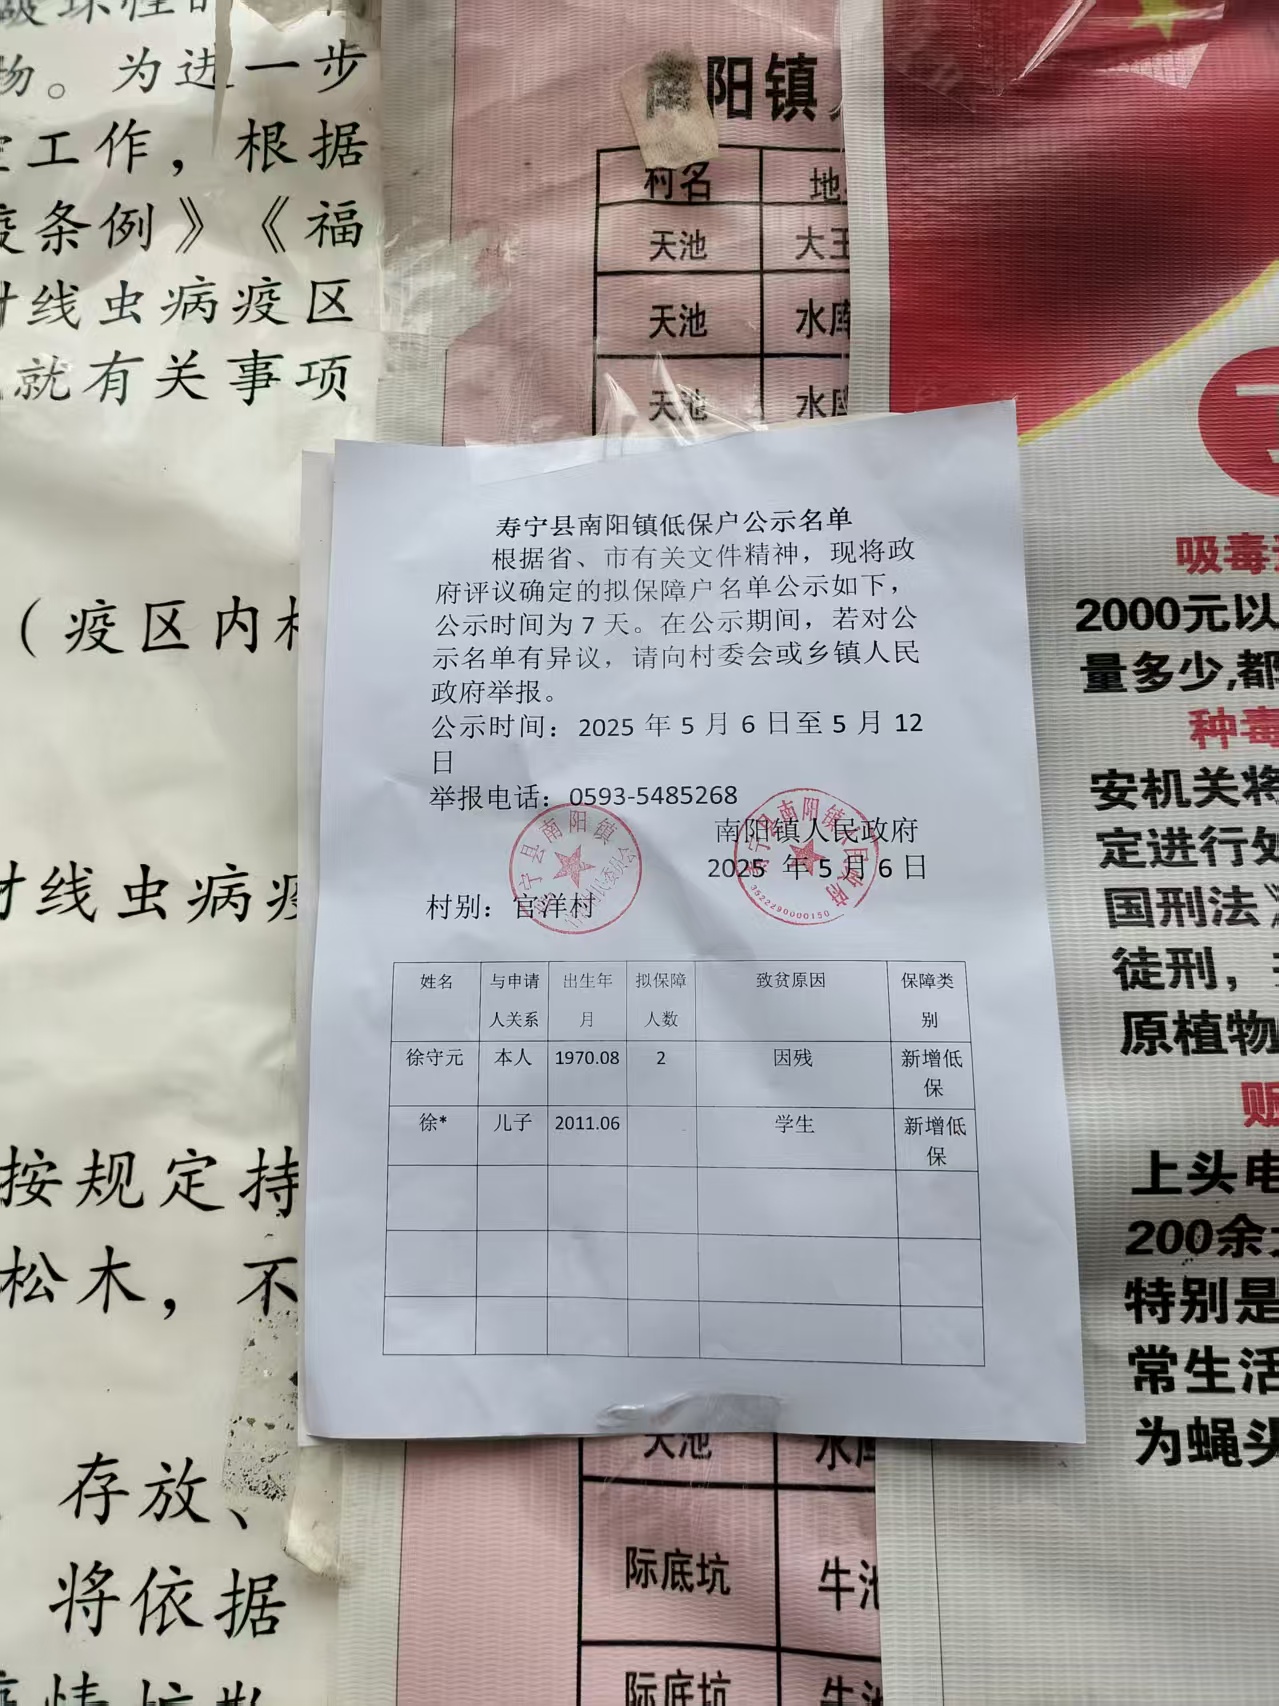 物。为进一步
工作，根据
条例》《福
线虫病疫区
就有关事项
（疫区内
线虫病疫
按规定持
松木，不
存放、
将依据
南阳镇
村名 地
天池 大王
天池 水库
天池 水库
寿宁县南阳镇低保户公示名单
根据省、市有关文件精神，现将政
府评议确定的拟保障户名单公示如下，
公示时间为7天。在公示期间，若对公
示名单有异议，请向村委会或乡镇人民
政府举报。
公示时间：2025年5月6日至5月12
日
举报电话：0593-5485268
南阳镇人民政府
2025年5月6日
村别：官洋村
3522290000150
姓名 与申请人关系 出生年月 拟保障人数 致贫原因 保障类别
徐守元 本人 1970.08 2 因残 新增低保
徐* 儿子 2011.06 学生 新增低保
天池
际底坑 牛池
际底坑 牛池
吸毒
2000元以
量多少,都
种毒
安机关将
定进行处
国刑法》
徒刑，
原植物
上头电
200余
特别是
常生活
为蝇头